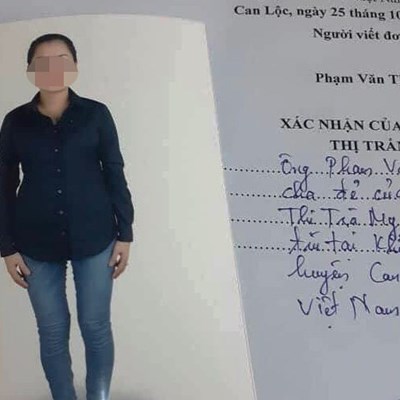 Can Lộc, ngày 25 tháng 10
Người viết đơ
Phạm Văn T
XÁC NHẬN CỦA
THỊ TRẤN
Ông Phạm Vă
cha đẻ của
Thị Trà My
huyện Can
Việt Nam